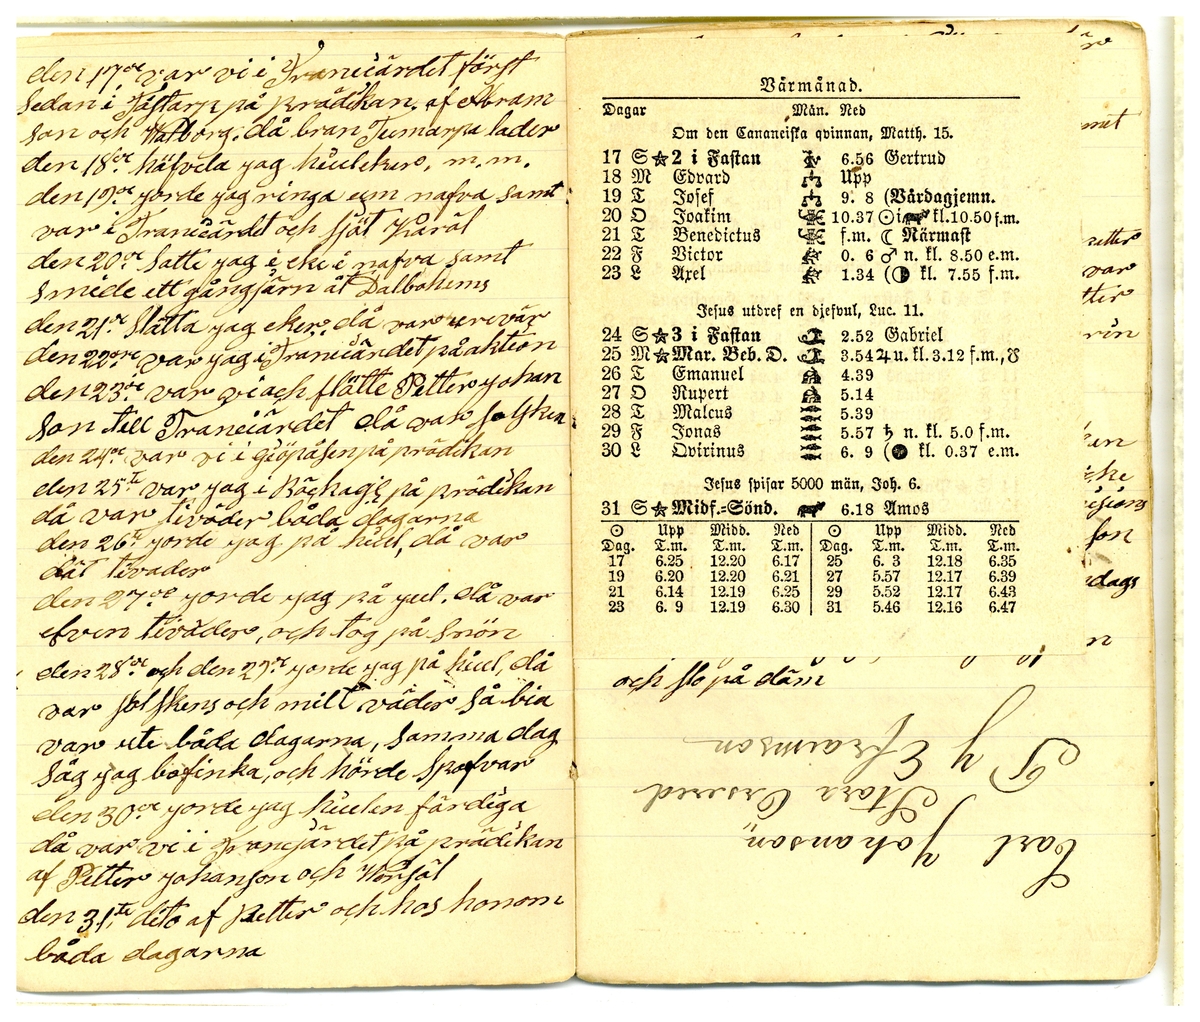 den 17de var vi i Tranicärdet först
Sedan i Tåstarp på prädikan, af Abram
son och Walborg. då bran Tumarpa lader
den 18de häfvela jag hiulekes, m.m.
den 19de yorde jag ringa em nafva samt
var i Tranicärdet och
den 20de satte jag i eke i nafva samt
Smede ett gångjärn åt Dalbohems
den 21de Slätta jag eker, då var urevär
den 22dre var jag i Tranicärdet på aktion
den 23de var vi och flötte Petter Johan
Son till Tranicärdet då var solsken
den 24de var vi i på prädikan
den 25te var jag i på prädikan
då var tiväder båda dagarna
den 26te yorde jag på hiul, då var
dåt tivader
den 27de yorde jag på yul. då var
efven tiväder, och tog på snön
den 28de och den 29de yorde jag på hiul, då
var solskens och milt väder så bia
var ute båda dagarna, samma dag
såg jag bofinka, och hörde skofvar
den 30de yorde jag hiulen färdiga
då var vi i Tranejärdet på prädikan
af Petter Johanson och
den 31,te dito af Petter och hos honom
båda dagarna
Vårmånad.
Dagar Mån. Ned
Om den Cananeiska qvinnan, Matth. 15.
17 S ★ 2 i Fastan 6.56 Gertrud
18 M Edvard Upp
19 T Josef 9. 8 (Vårdagjemn.
20 O Joakim 10.37 ☉ i kl. 10.50 f.m.
21 T Benedictus f.m. ☾ Närmast
22 F Victor 0. 6 ♂ n. kl. 8.50 e.m.
23 L Axel 1.34 (◑ kl. 7.55 f.m.
Jesus utdref en djefvul, Luc. 11.
24 S ★ 3 i Fastan 2.52 Gabriel
25 M ★ Mar. Beb. D. 3.54 ♃ u. kl. 3.12 f.m., ☿
26 T Emanuel 4.39
27 O Rupert 5.14
28 T Malcus 5.39
29 F Jonas 5.57 ♄ n. kl. 5.0 f.m.
30 L Qvirinus 6. 9 (● kl. 0.37 e.m.
Jesus spisar 5000 män, Joh. 6.
31 S ★ Midf.=Sönd. 6.18 Amos
☉ Upp Midd. Ned ☉ Upp Midd. Ned
Dag. T.m. T.m. T.m. Dag. T.m. T.m. T.m.
17 6.25 12.20 6.17 25 6. 3 12.18 6.35
19 6.20 12.20 6.21 27 5.57 12.17 6.39
21 6.14 12.19 6.25 29 5.52 12.17 6.43
23 6. 9 12.19 6.30 31 5.46 12.16 6.47
och slo på däm
Carl Johanson,,
Stora Orsered
P J Efraimson
etter
var
son
dags